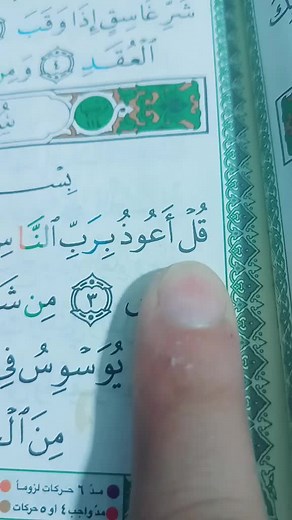 شَرِّ غَاسِقٍ إِذَا وَقَبَ
ٱلْعُقَدِ ٤ وَمِن
قُلْ أَعُوذُ بِرَبِّ ٱلنَّاسِ
٣ مِن شَ
يُوَسْوِسُ فِى
مِنَ
مدّ ٦ حركات لزوماً
مدّ واجب ٤ او ٥ حركات